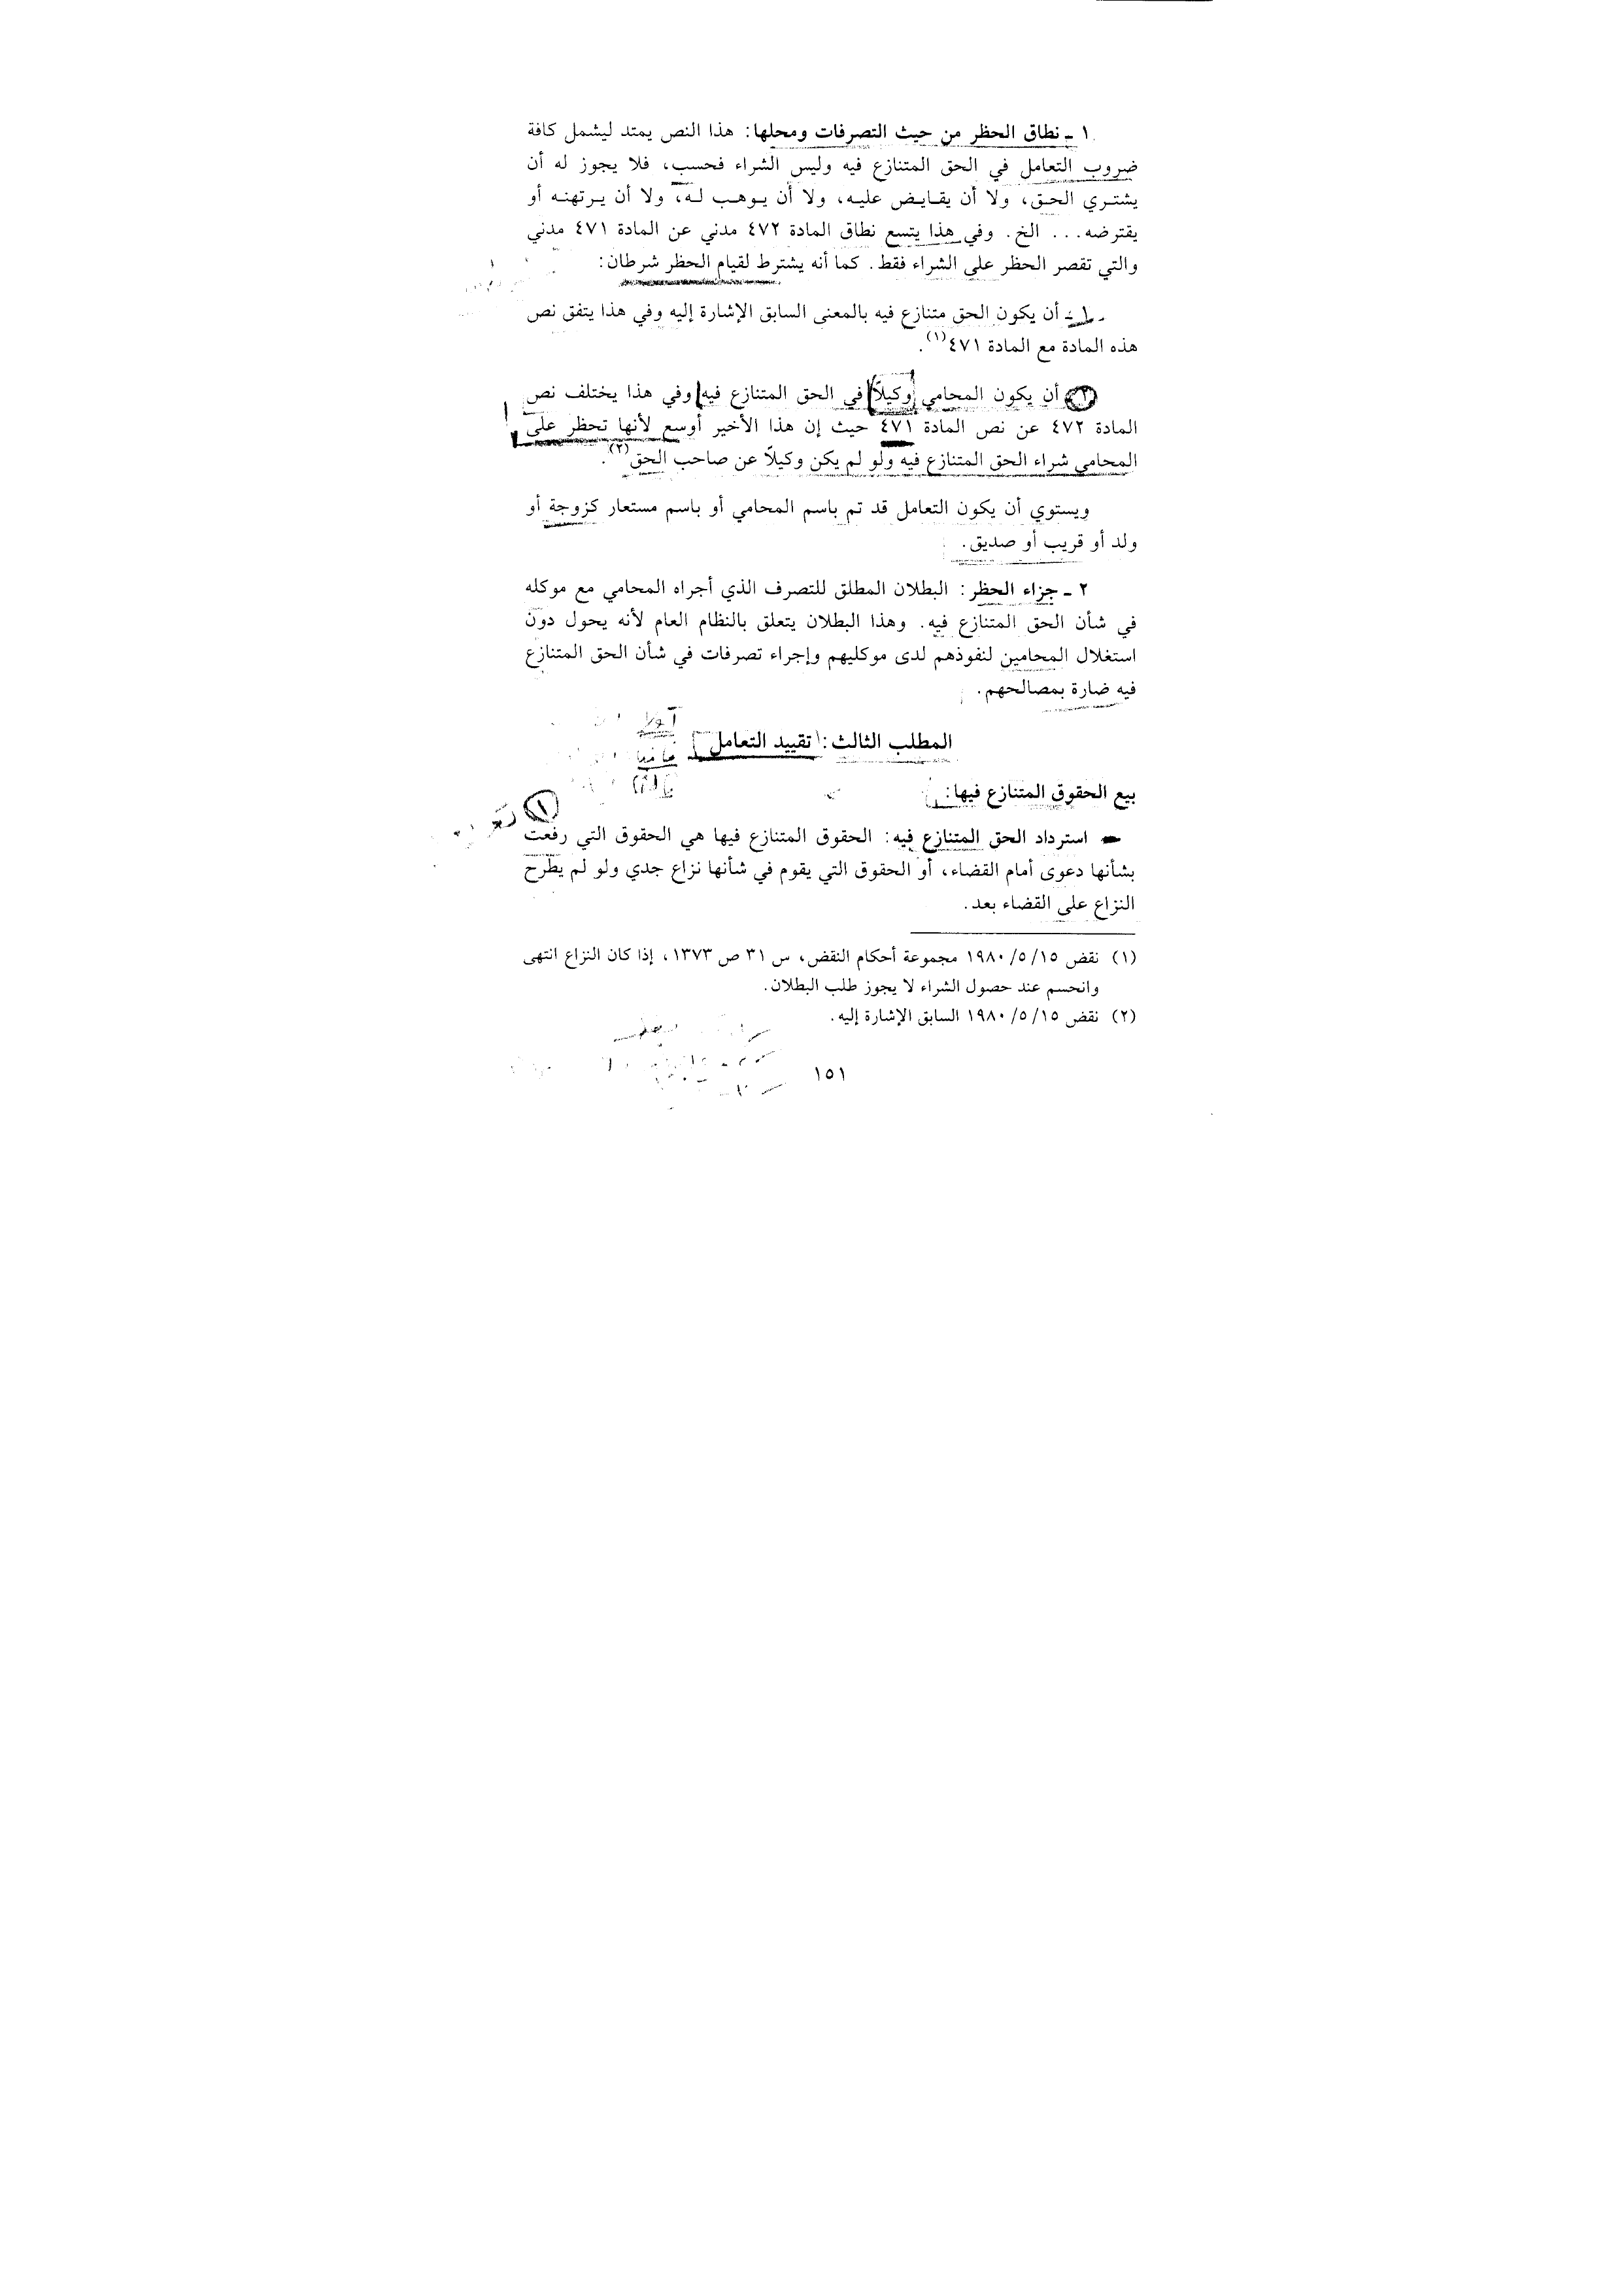 ١ ـ نطاق الحظر من حيث التصرفات ومحلها: هذا النص يمتد ليشمل كافة
ضروب التعامل في الحق المتنازع فيه وليس الشراء فحسب، فلا يجوز له أن
يشتري الحق، ولا أن يقايض عليه، ولا أن يوهب له، ولا أن يرتهنه أو
يقترضه... الخ. وفي هذا يتسع نطاق المادة ٤٧٢ مدني عن المادة ٤٧١ مدني
والتي تقصر الحظر على الشراء فقط. كما أنه يشترط لقيام الحظر شرطان:
١ ـ أن يكون الحق متنازع فيه بالمعنى السابق الإشارة إليه وفي هذا يتفق نص
هذه المادة مع المادة ٤٧١(١).
٢ أن يكون المحامي وكيلاً في الحق المتنازع فيه وفي هذا يختلف نص
المادة ٤٧٢ عن نص المادة ٤٧١ حيث إن هذا الأخير أوسع لأنها تحظر على
المحامي شراء الحق المتنازع فيه ولو لم يكن وكيلاً عن صاحب الحق(٢).
ويستوي أن يكون التعامل قد تم باسم المحامي أو باسم مستعار كزوجة أو
ولد أو قريب أو صديق.
٢ ـ جزاء الحظر: البطلان المطلق للتصرف الذي أجراه المحامي مع موكله
في شأن الحق المتنازع فيه. وهذا البطلان يتعلق بالنظام العام لأنه يحول دون
استغلال المحامين لنفوذهم لدى موكليهم وإجراء تصرفات في شأن الحق المتنازع
فيه ضارة بمصالحهم.
المطلب الثالث: تقييد التعامل
بيع الحقوق المتنازع فيها:
١
ـ استرداد الحق المتنازع فيه: الحقوق المتنازع فيها هي الحقوق التي رفعت
بشأنها دعوى أمام القضاء، أو الحقوق التي يقوم في شأنها نزاع جدي ولو لم يطرح
النزاع على القضاء بعد.
(١) نقض ١٥/ ٥/ ١٩٨٠ مجموعة أحكام النقض، س ٣١ ص ١٣٧٣، إذا كان النزاع انتهى
وانحسم عند حصول الشراء لا يجوز طلب البطلان.
(٢) نقض ١٥/ ٥/ ١٩٨٠ السابق الإشارة إليه.
١٥١